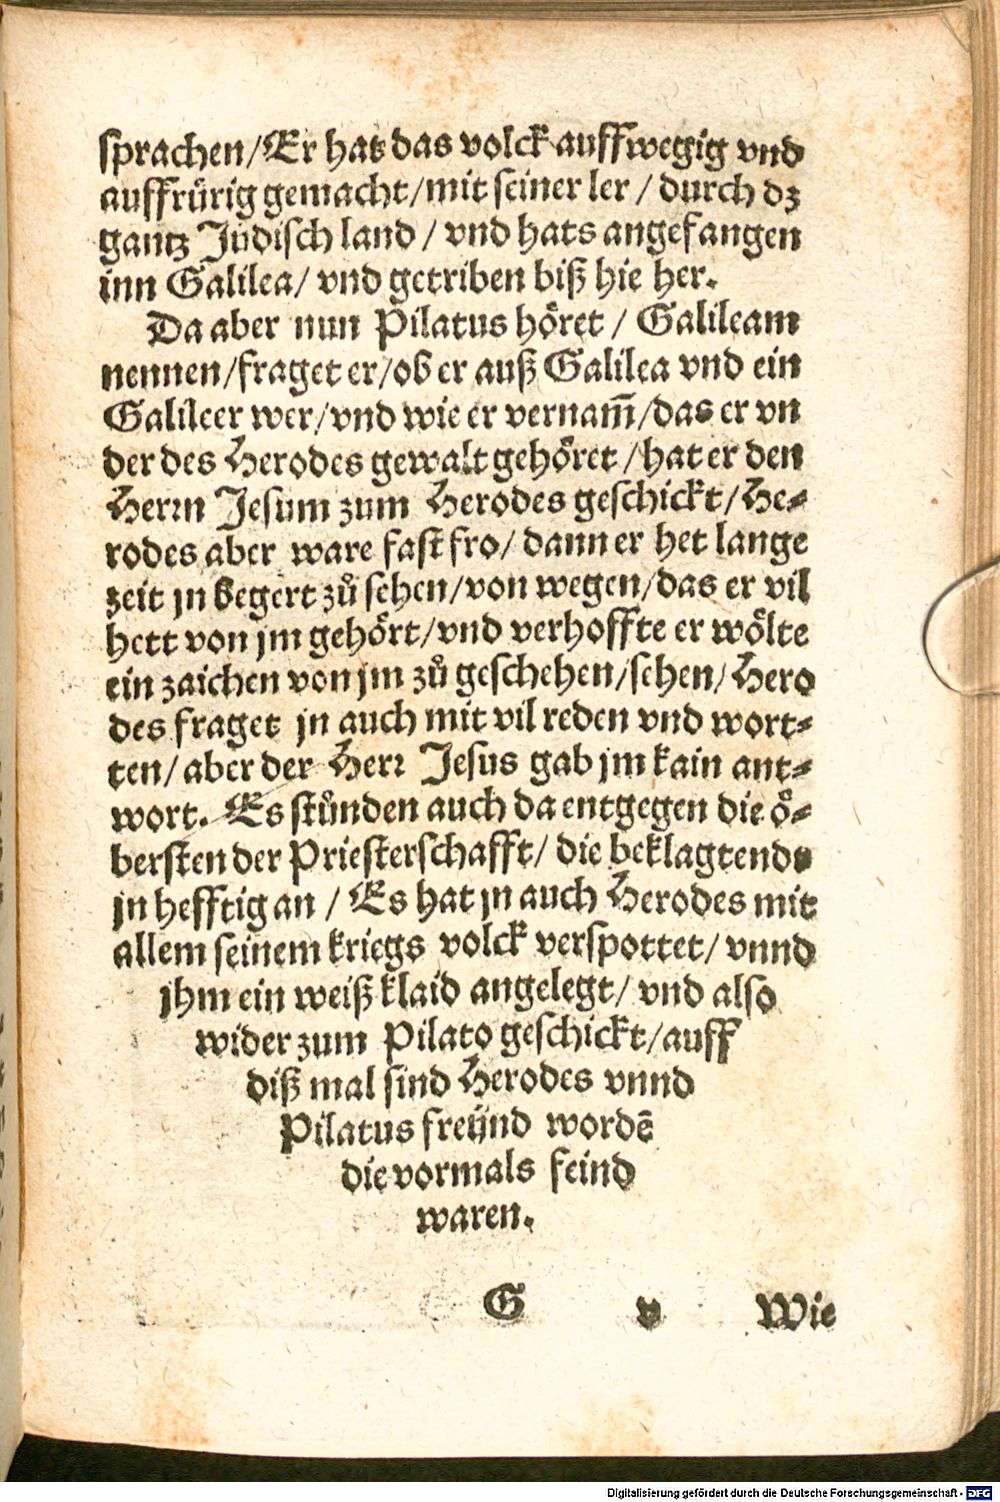 sprachen/Er hat das volck auffwegig vnd
auffrürig gemacht/mit seiner ler / durch dz
gantz Jüdisch land / vnd hats angefangen
inn Galilea/ vnd getriben biß hie her.
Da aber nun Pilatus höret / Galileam
nennen/fraget er/ob er auß Galilea vnd ein
Galileer wer/vnd wie er vernam̃/das er vn
der des Herodes gewalt gehöret /hat er den
Herrn Jesum zum Herodes geschickt/He-
rodes aber ware fast fro/ dann er het lange
zeit jn begert zů sehen/von wegen/das er vil
hett von jm gehört/vnd verhoffte er wölte
ein zaichen von jm zů geschehen/sehen/Hero
des fraget jn auch mit vil reden vnd wort-
ten/ aber der Herr Jesus gab jm kain ant-
wort. Es stůnden auch da entgegen die ö-
bersten der Priesterschafft/ die beklagtend
jn hefftig an / Es hat jn auch Herodes mit
allem seinem kriegs volck verspottet/ vnnd
jhm ein weiß klaid angelegt/ vnd also
wider zum Pilato geschickt/auff
diß mal sind Herodes vnnd
Pilatus freünd wordẽ
die vormals feind
waren.
G v Wie
Digitalisierung gefördert durch die Deutsche Forschungsgemeinschaft - DFG